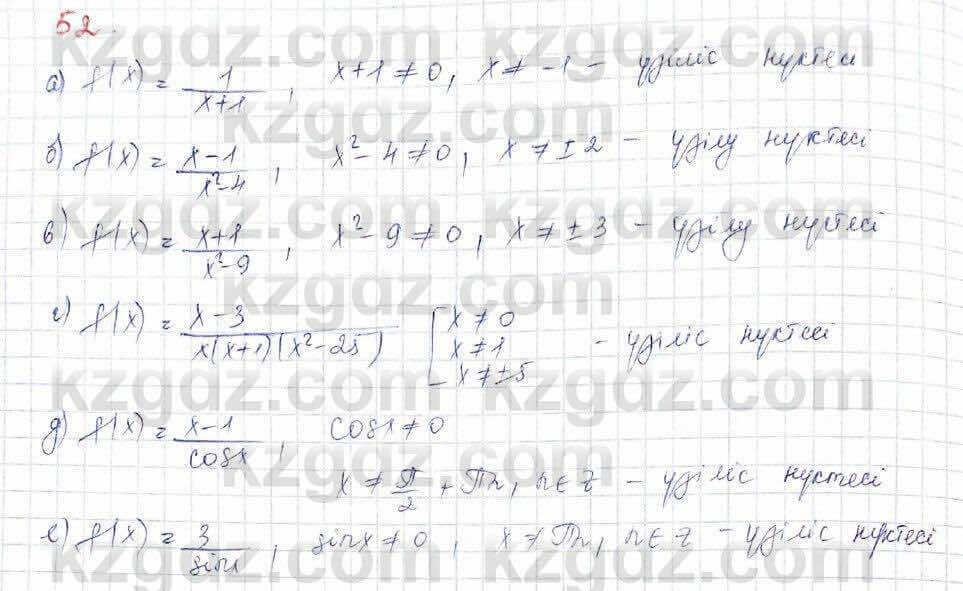 52.
а) f(x) = 1/(x+1), x+1≠0, x≠-1 – үзіліс нүктесі
б) f(x) = (x-1)/(x²-4), x²-4≠0, x≠±2 – үзілу нүктесі
в) f(x) = (x+1)/(x²-9), x²-9≠0, x≠±3 – үзілу нүктесі
г) f(x) = (x-3)/(x(x+1)(x²-25)) [x≠0 x≠1 x≠±5 – үзіліс нүктесі
д) f(x) = (x-1)/cosx, cosx≠0
x≠π/2+πn, n∈z – үзіліс нүктесі
е) f(x) = 3/sinx, sinx≠0, x≠πn, n∈z – үзіліс нүктесі
kzgdz.com
kzgdz.com
kzgdz.com
kzgdz.com
kzgdz.com
kzgdz.com
kzgdz.com